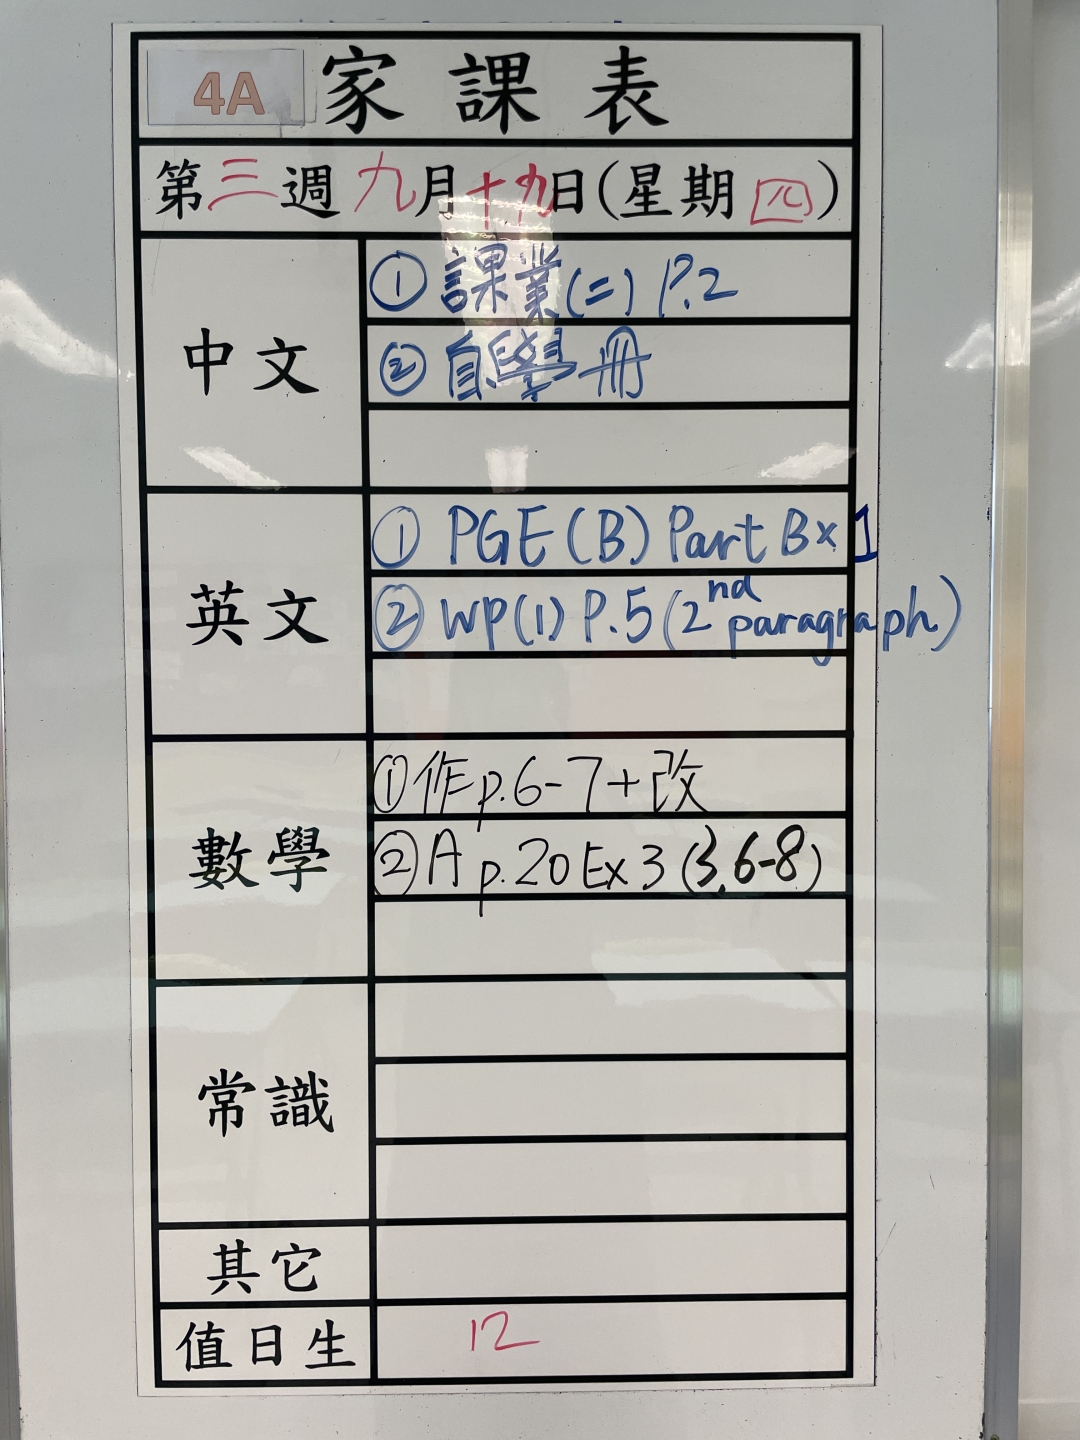 4A 家課表
第三週九月十九日(星期四)
中文
① 課業(二) P.2
② 自學冊
英文
① PGE (B) Part B x 1
② WP(1) P.5 (2nd paragraph)
數學
① 作 p.6-7+改
② A p.20 Ex 3 (3,6-8)
常識
其它
值日生 12